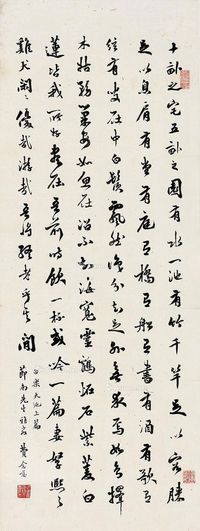 十畝之宅五畝之園有水一池有竹千竿足以容膝
足以息肩有堂有庭有橋有船有書有酒有歌有
弦有叟在中白鬚飄然識分知足外無求焉如鳥擇
木姑務巢安如魚在沼不知海寬靈鶴怪石紫菱白
蓮皆我所好盡在吾前時飲一杯或吟一篇妻孥熙々
雞犬閑々優哉游哉吾將終老乎其間
白樂天池上篇
節南先生雅